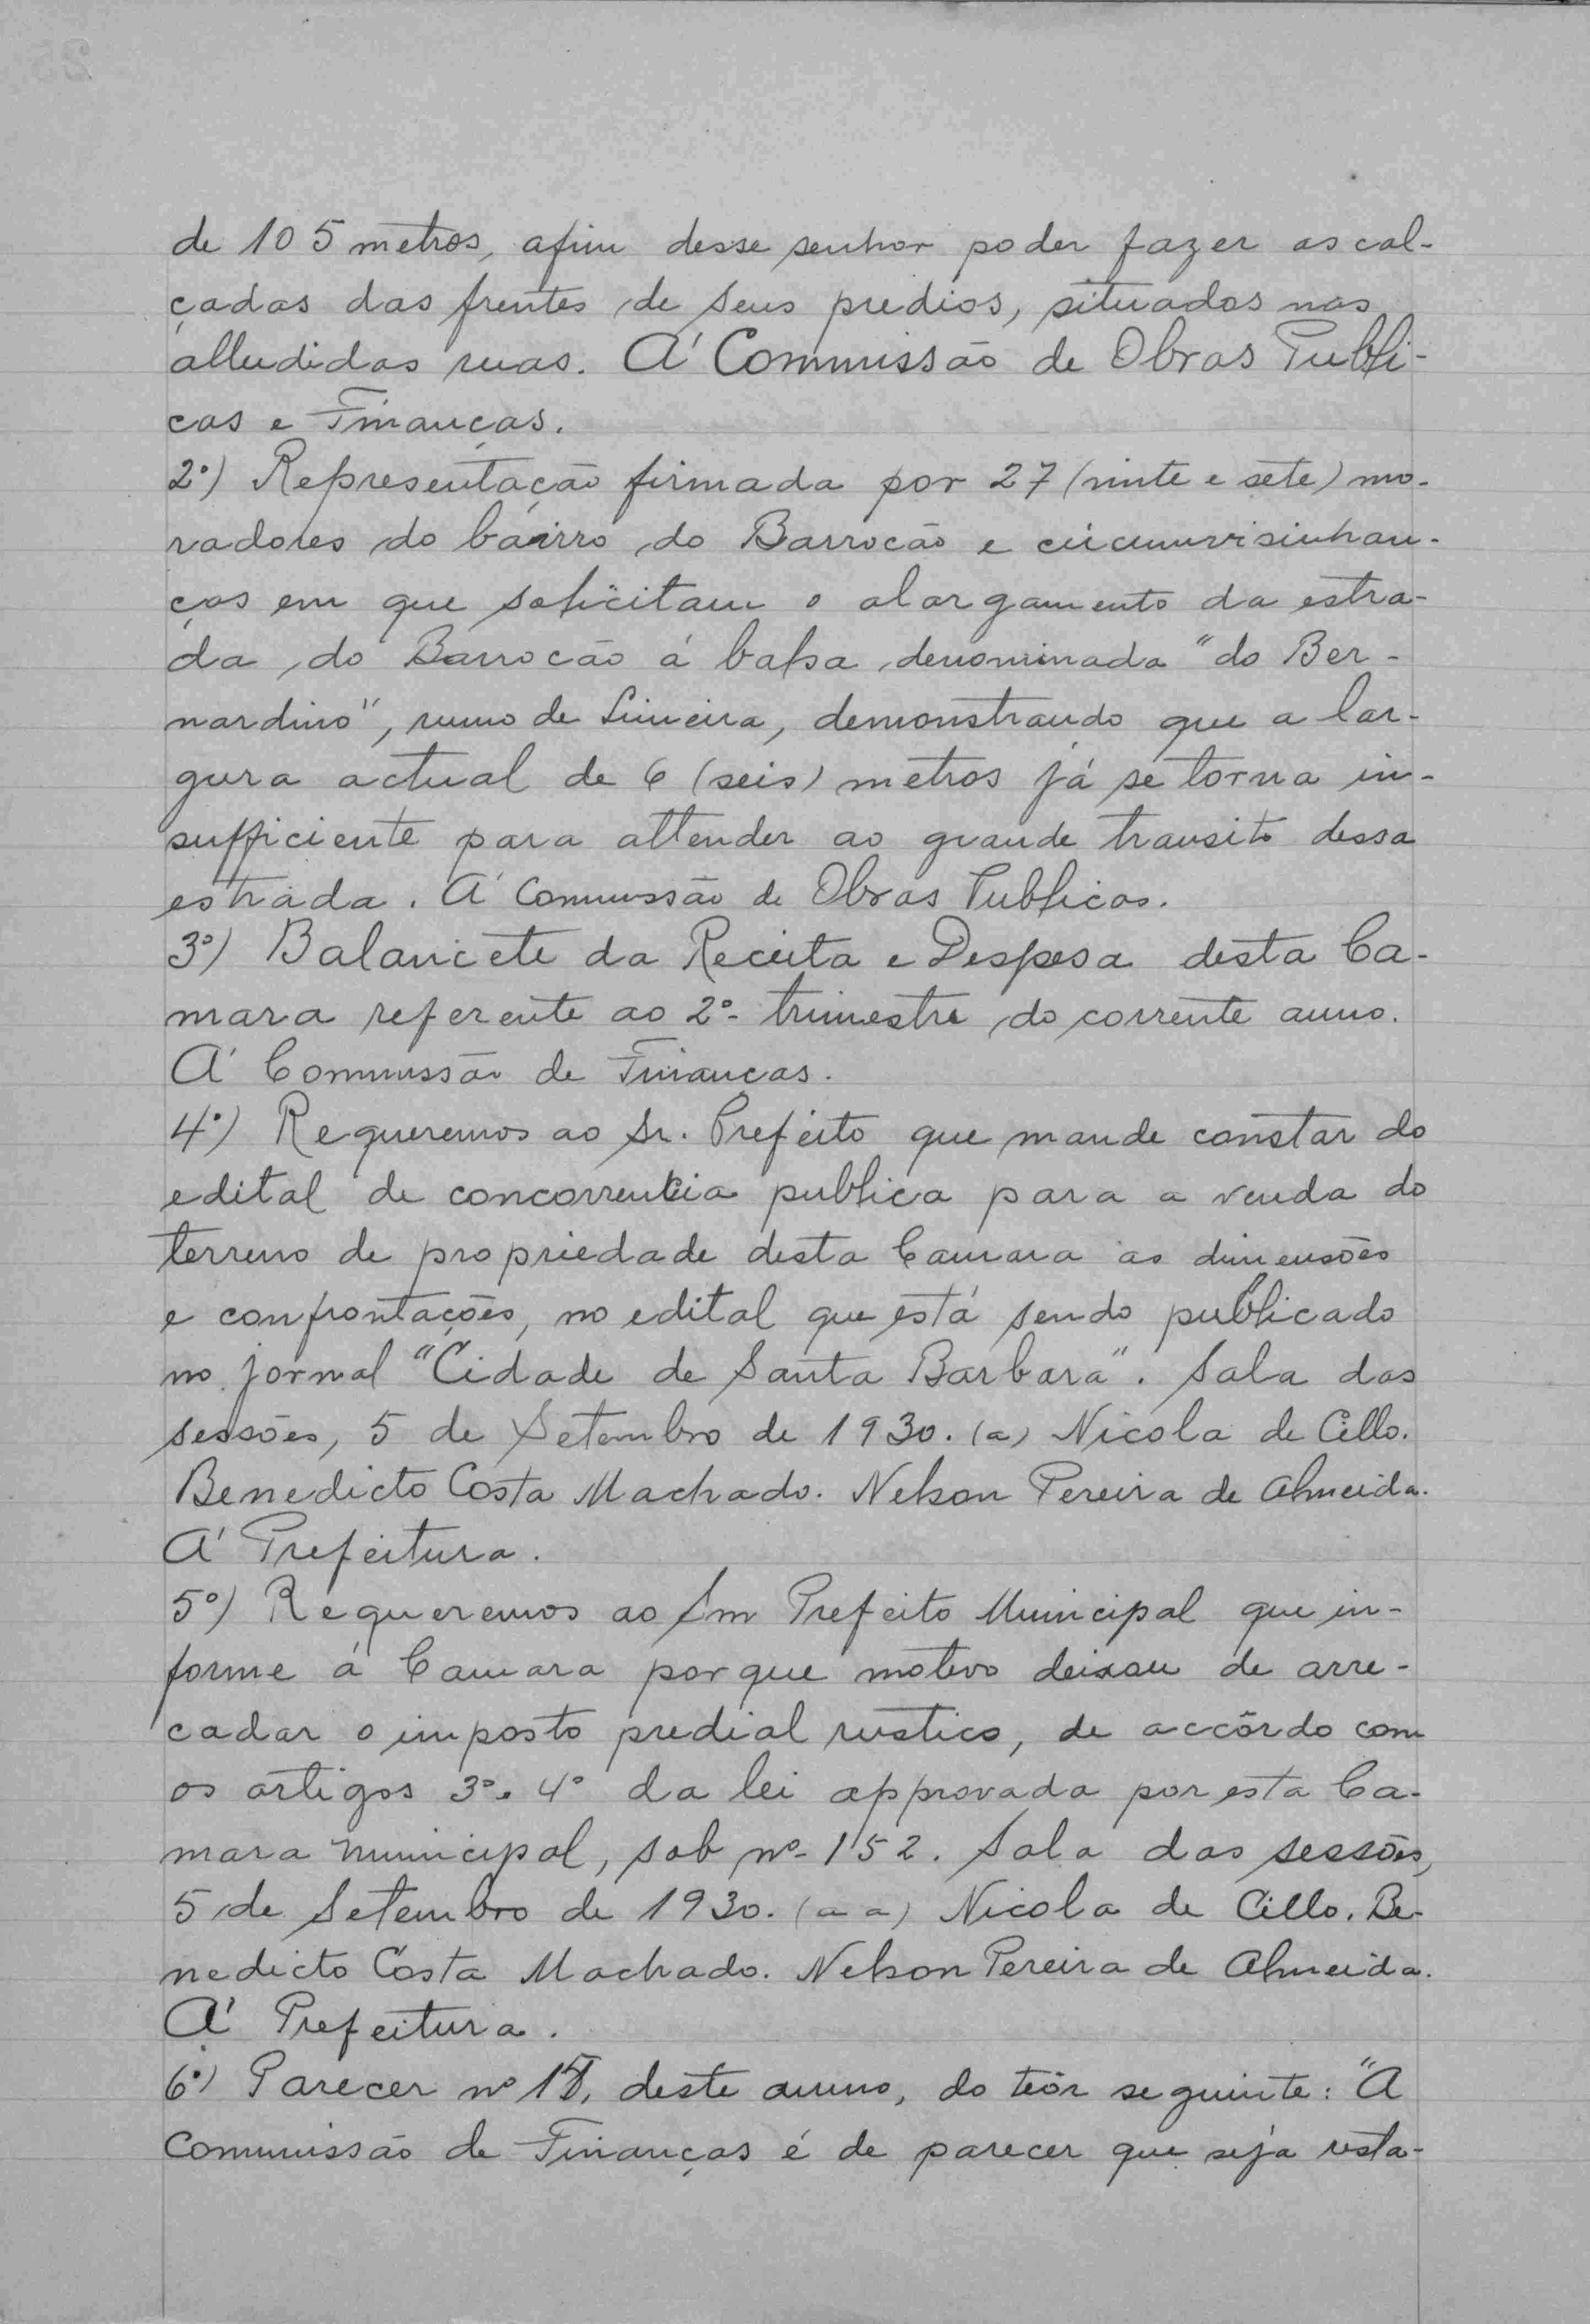 de 105 metros, afim desse senhor poder fazer as cal-
çadas das frentes de seus predios, situados nas
alludidas ruas. Á Commissão de Obras Publi-
cas e Finanças.
2º) Representação firmada por 27 (vinte e sete) mo-
radores do bairro do Barrocão e circumvisinhan-
ças em que solicitam o alargamento da estra-
da do Barrocão á balsa denominada "do Ber-
nardino", rumo de Limeira, demonstrando que a lar-
gura actual de 6 (seis) metros já se torna in-
sufficiente para attender ao grande transito dessa
estrada. Á Commissão de Obras Publicas.
3º) Balancete da Receita e Despesa desta Ca-
mara referente ao 2º trimestre do corrente anno.
Á Commissão de Finanças.
4º) Requeremos ao Sr. Prefeito que mande constar do
edital de concorrencia publica para a venda do
terreno de propriedade desta Camara as dimensões
e confrontações, no edital que está sendo publicado
no jornal "Cidade de Santa Barbara". Sala das
sessões, 5 de Setembro de 1930. (a) Nicola de Cillo.
Benedicto Costa Machado. Nelson Pereira de Almeida.
Á Prefeitura.
5º) Requeremos ao Snr Prefeito Municipal que in-
forme á Camara porque motivo deixou de arre-
cadar o imposto predial rustico, de accôrdo com
os artigos 3º e 4º da lei approvada por esta Ca-
mara Municipal, sob nº 152. Sala das sessões,
5 de Setembro de 1930. (a a) Nicola de Cillo. Be-
nedicto Costa Machado. Nelson Pereira de Almeida.
Á Prefeitura.
6º) Parecer nº deste anno, do teôr seguinte: "A
Commissão de Finanças é de parecer que seja resta-